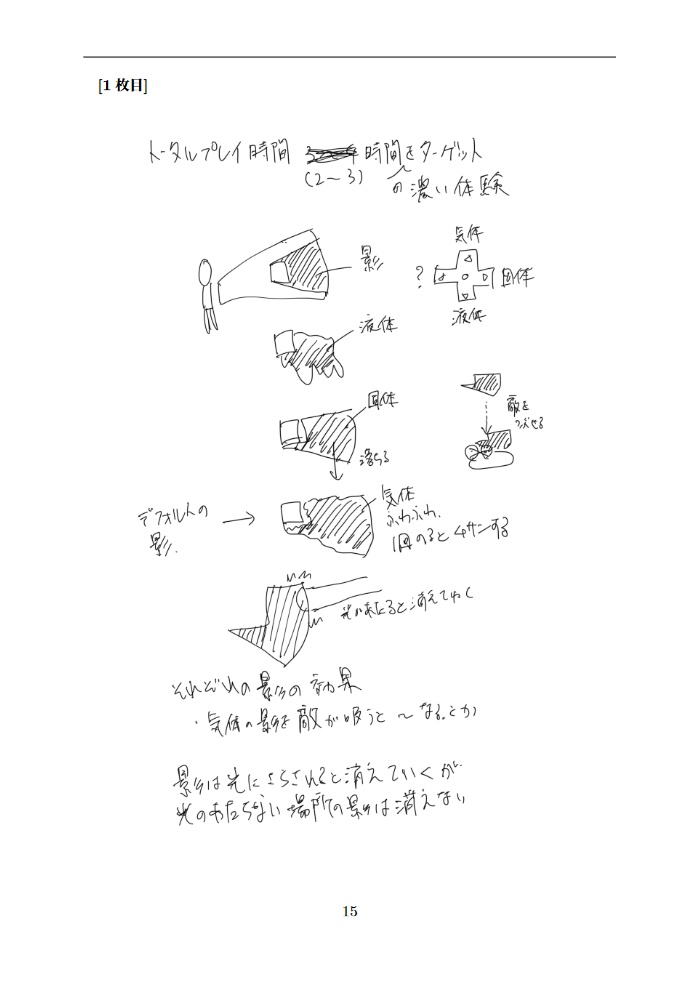 [1 枚目]
トータルプレイ時間 時間をターゲット
(2〜3) の濃い体験
影
気体
?
固体
液体
液体
固体
落ちる
敵を
つぶせる
デフォルトの
影.
→
気体
ふわふわ.
1回のると4サンする
光があたると消えてゆく
それぞれの影の効果
・気体の影を敵が吸うと〜なる。とか
影は光にさらされると消えていくが
光のあたらない場所の影は消えない
15